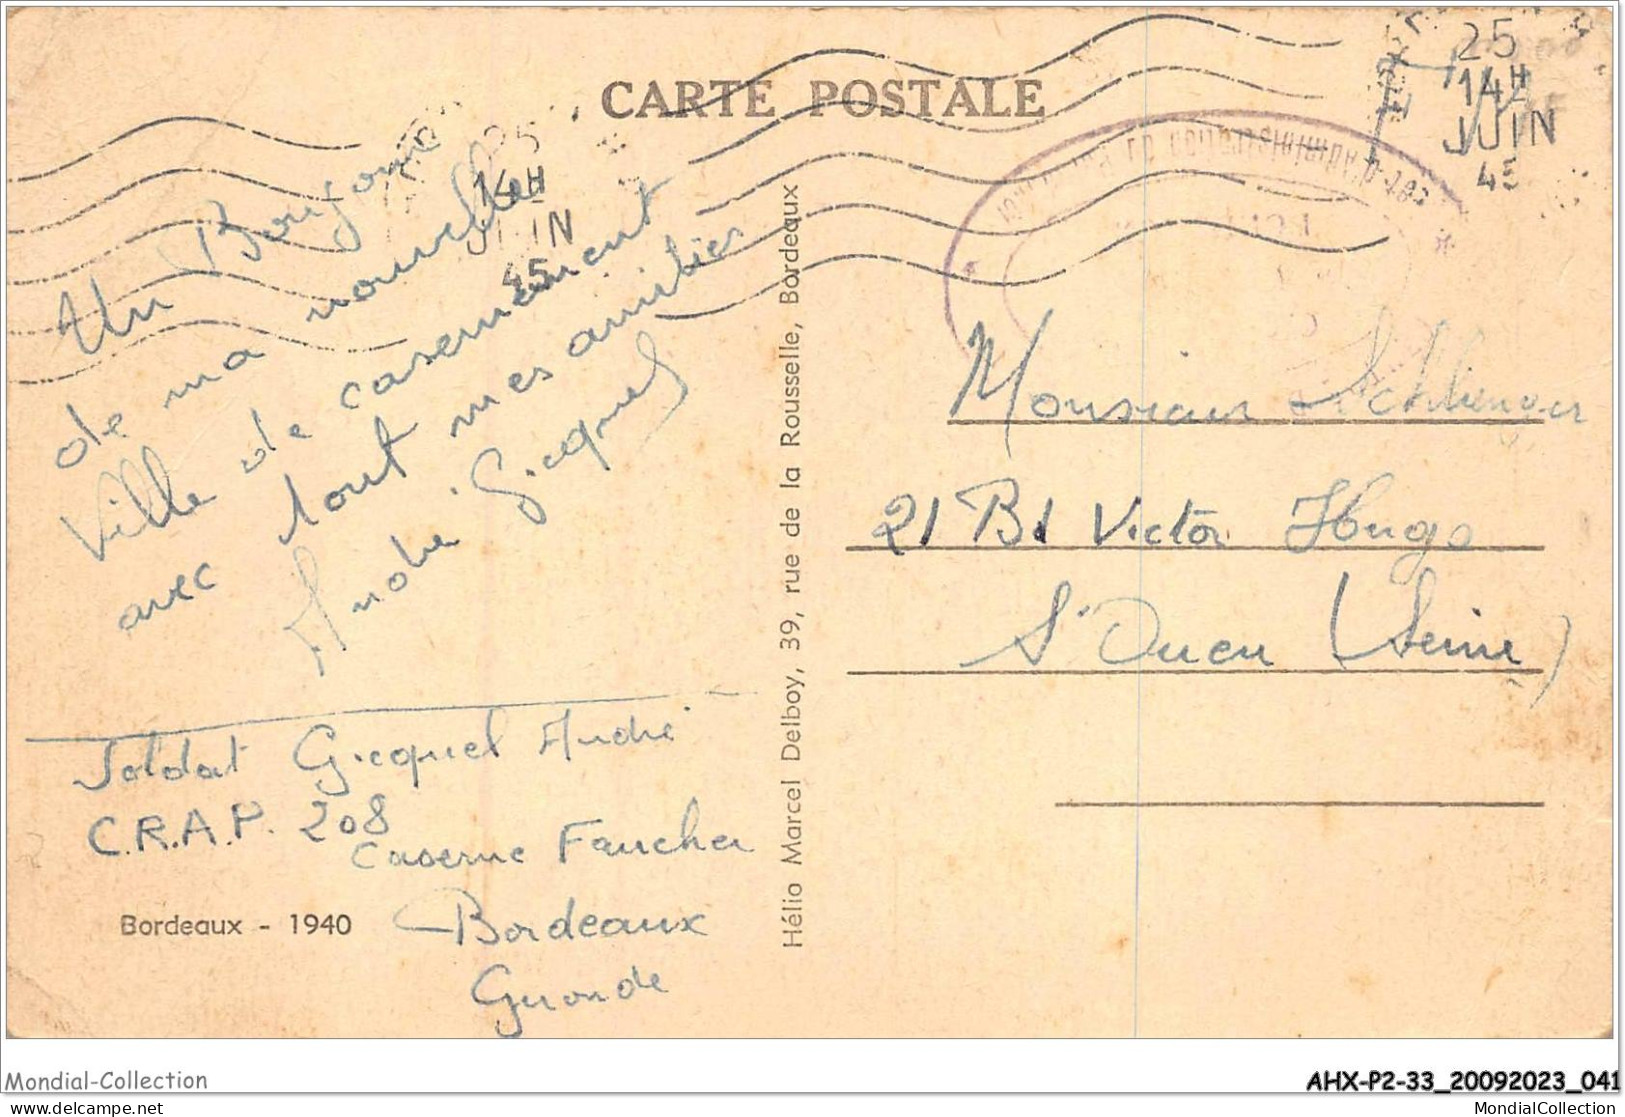 CARTE POSTALE
25
14H
JUIN
45
25
14H
JUIN
45
Un Bonjour
de ma nouvelle
Ville de casernement
avec tout mes amitiés
André Gicquel
Soldat Gicquel André
C.R.A.P. 208
Caserne Faucher
Bordeaux
Gironde
Bordeaux - 1940
Hélio Marcel Delboy, 39, rue de la Rousselle, Bordeaux
Monsieur Schlienger
21 Bd Victor Hugo
St Ouen (Seine)
Mondial-Collection
AHX-P2-33_20092023_041
delcampe.net
MondialCollection